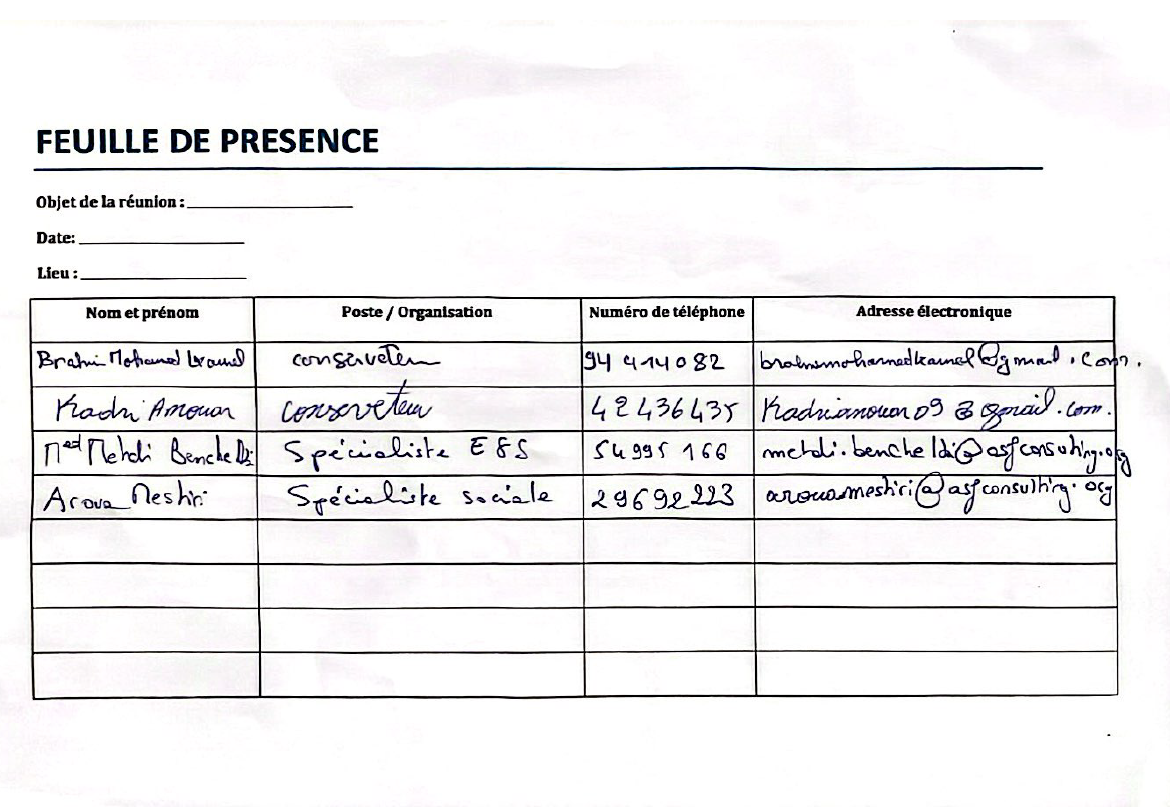 FEUILLE DE PRESENCE
Objet de la réunion :
Date:
Lieu :
Nom et prénom Poste / Organisation Numéro de téléphone Adresse électronique
Brahmi Mohamed kamel conservateur 94 414 082 brahmimohamedkamel@gmail.com.
Kadri Anouar conservateur 42436435 Kadrianouar09@gmail.com.
Med Mehdi Benchekdi Spécialiste E&S 54 995 166 @asfconsulting.org
Aroua Meshiri Spécialiste sociale 29692223 arouameshiri@asfconsulting.org